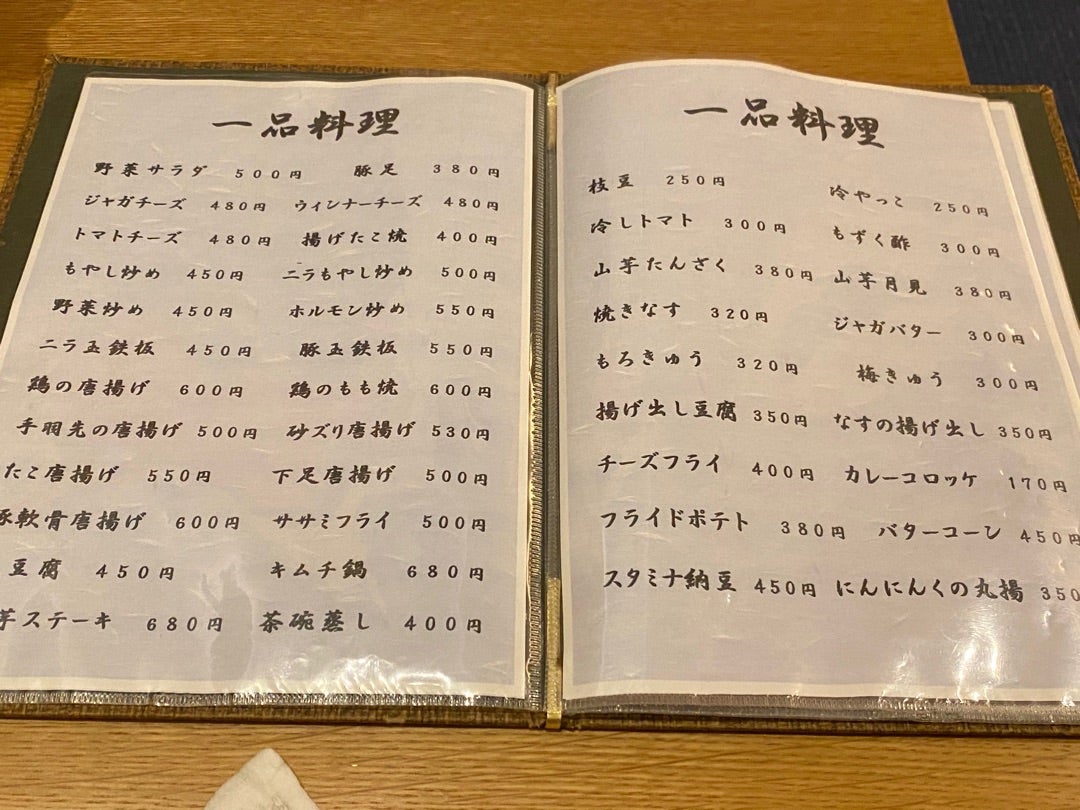 一品料理
野菜サラダ 500円 豚足 380円
ジャガチーズ 480円 ウィンナーチーズ 480円
トマトチーズ 480円 揚げたこ焼 400円
もやし炒め 450円 ニラもやし炒め 500円
野菜炒め 450円 ホルモン炒め 550円
ニラ玉鉄板 450円 豚玉鉄板 550円
鶏の唐揚げ 600円 鶏のもも焼 600円
手羽先の唐揚げ 500円 砂ズリ唐揚げ 530円
たこ唐揚げ 550円 下足唐揚げ 500円
豚軟骨唐揚げ 600円 ササミフライ 500円
豆腐 450円 キムチ鍋 680円
芋ステーキ 680円 茶碗蒸し 400円
一品料理
枝豆 250円 冷やっこ 250円
冷しトマト 300円 もずく酢 300円
山芋たんざく 380円 山芋月見 380円
焼きなす 320円 ジャガバター 300円
もろきゅう 320円 梅きゅう 300円
揚げ出し豆腐 350円 なすの揚げ出し 350円
チーズフライ 400円 カレーコロッケ 170円
フライドポテト 380円 バターコーン 450円
スタミナ納豆 450円 にんにくの丸揚 350